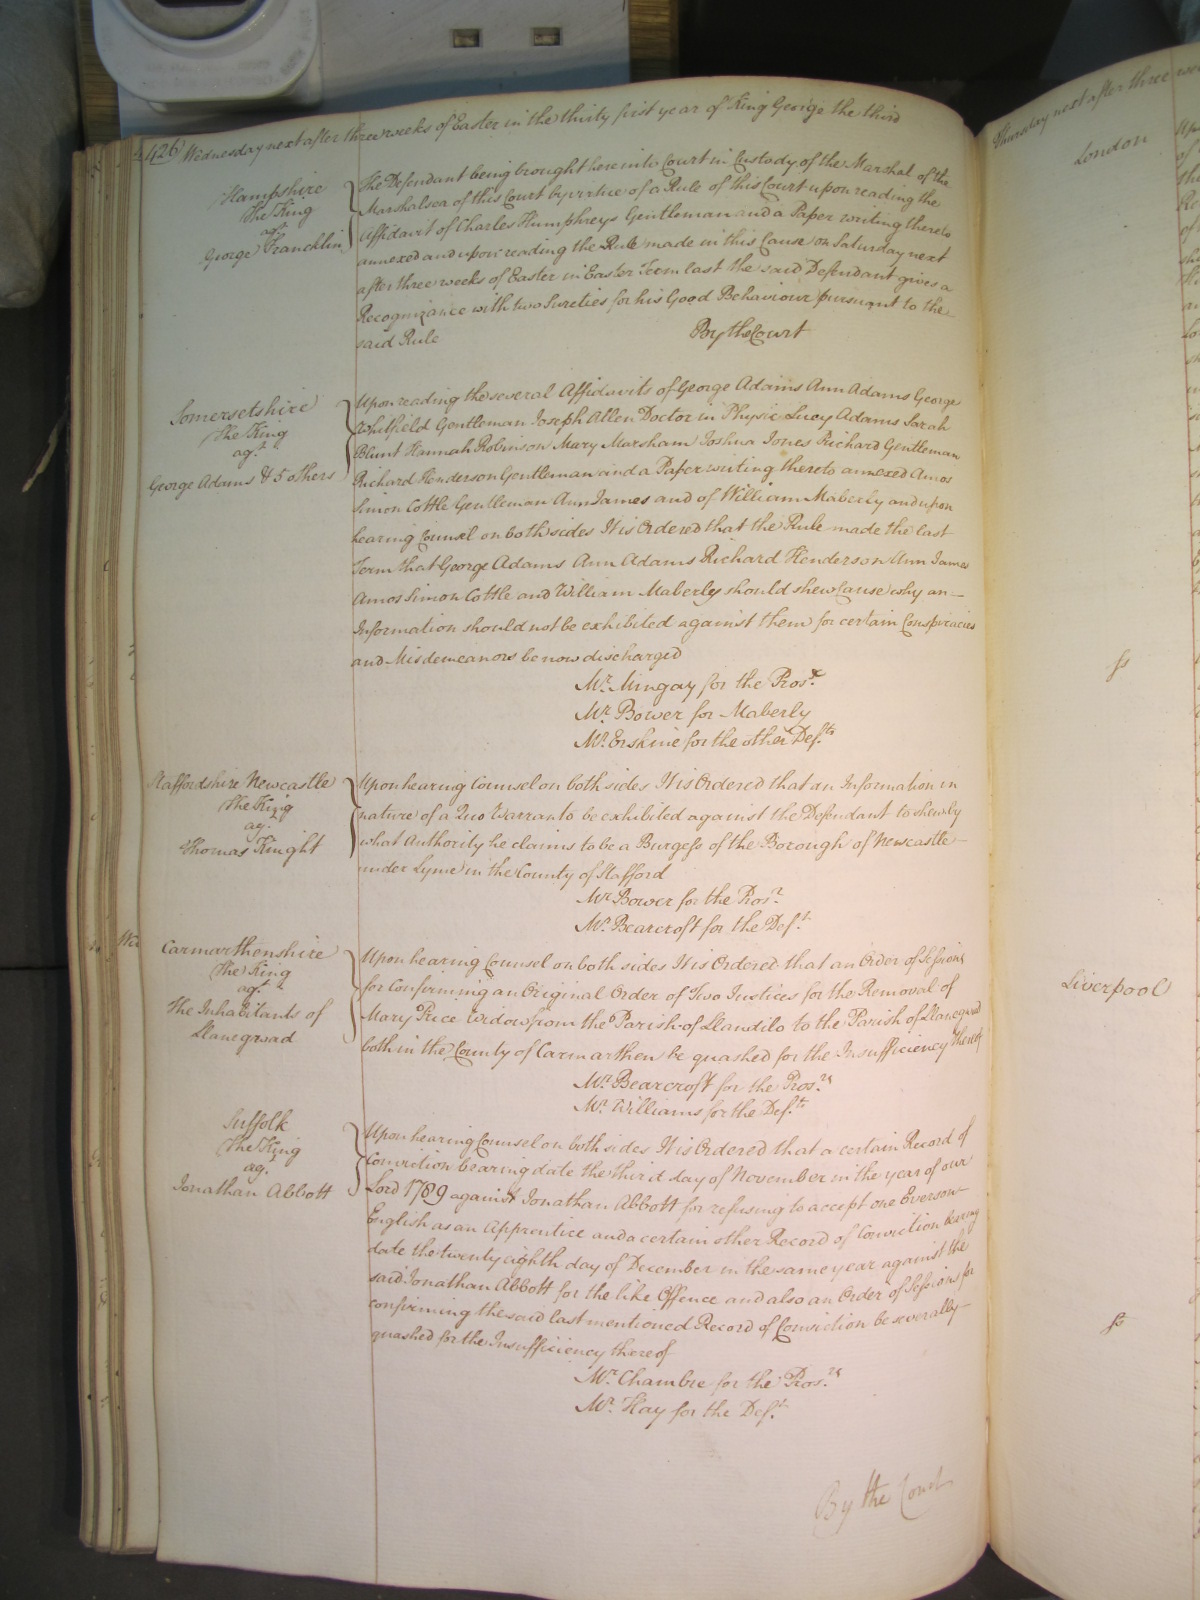 426 Wednesday next after three weeks of Easter in the thirty first year of King George the third
Hampshire
The King
agt
George Francklin
The Defendant being brought here into Court in Custody of the Marshal of the
Marshalsea of this Court by virtue of a Rule of this Court upon reading the
Affidavit of Charles Humphreys Gentleman and a Paper writing thereto
annexed and upon reading the Rule made in this Cause on Saturday next
after three weeks of Easter in Easter Term last the said Defendant gives a
Recognizance with two Sureties for his Good Behaviour pursuant to the
said Rule
By the Court
Somersetshire
The King
agt
George Adams & 5 others
Upon reading the several Affidavits of George Adams Ann Adams George
Whitfield Gentleman Joseph Allen Doctor in Physic Lucy Adams Sarah
Blunt Hannah Robinson Mary Marsham Joshua Jones Richard Gentleman
Richard Henderson Gentleman and a Paper writing thereto annexed Amos
Simon Cottle Gentleman Ann James and of William Maberly and upon
hearing Counsel on both sides It is Ordered that the Rule made the last
Term that George Adams Ann Adams Richard Henderson Ann James
Amos Simon Cottle and William Maberly should shew Cause why an
Information should not be exhibited against them for certain Conspiracies
and Misdemeanors be now discharged
Mr. Mingay for the Prosr.
Mr. Bower for Maberly
Mr. Erskine for the other Defts.
Staffordshire Newcastle
The King
agt
Thomas Knight
Upon hearing Counsel on both sides It is Ordered that an Information in
nature of a Quo Warranto be exhibited against the Defendant to shew by
what Authority he claims to be a Burgess of the Borough of Newcastle
under Lyme in the County of Stafford
Mr. Bower for the Prosr.
Mr. Bearcroft for the Deft.
Carmarthenshire
The King
agt
The Inhabitants of
Llanegwad
Upon hearing Counsel on both sides It is Ordered that an Order of Sessions
for Confirming an Original Order of Two Justices for the Removal of
Mary Price Widow from the Parish of Llandilo to the Parish of Llanegwad
both in the County of Carmarthen be quashed for the Insufficiency thereof
Mr. Bearcroft for the Prosrs.
Mr. Williams for the Defts.
Suffolk
The King
agt
Jonathan Abbott
Upon hearing Counsel on both sides It is Ordered that a certain Record of
Conviction bearing date the third day of November in the year of our
Lord 1789 against Jonathan Abbott for refusing to accept one Everson
English as an Apprentice and a certain other Record of Conviction bearing
date the twenty eighth day of December in the same year against the
said Jonathan Abbott for the like Offence and also an Order of Sessions for
confirming the said last mentioned Record of Conviction be severally
quashed for the Insufficiency thereof
Mr. Chambre for the Prosrs.
Mr. Hay for the Deft.
By the Court
Thursday next after three
London
Liverpool